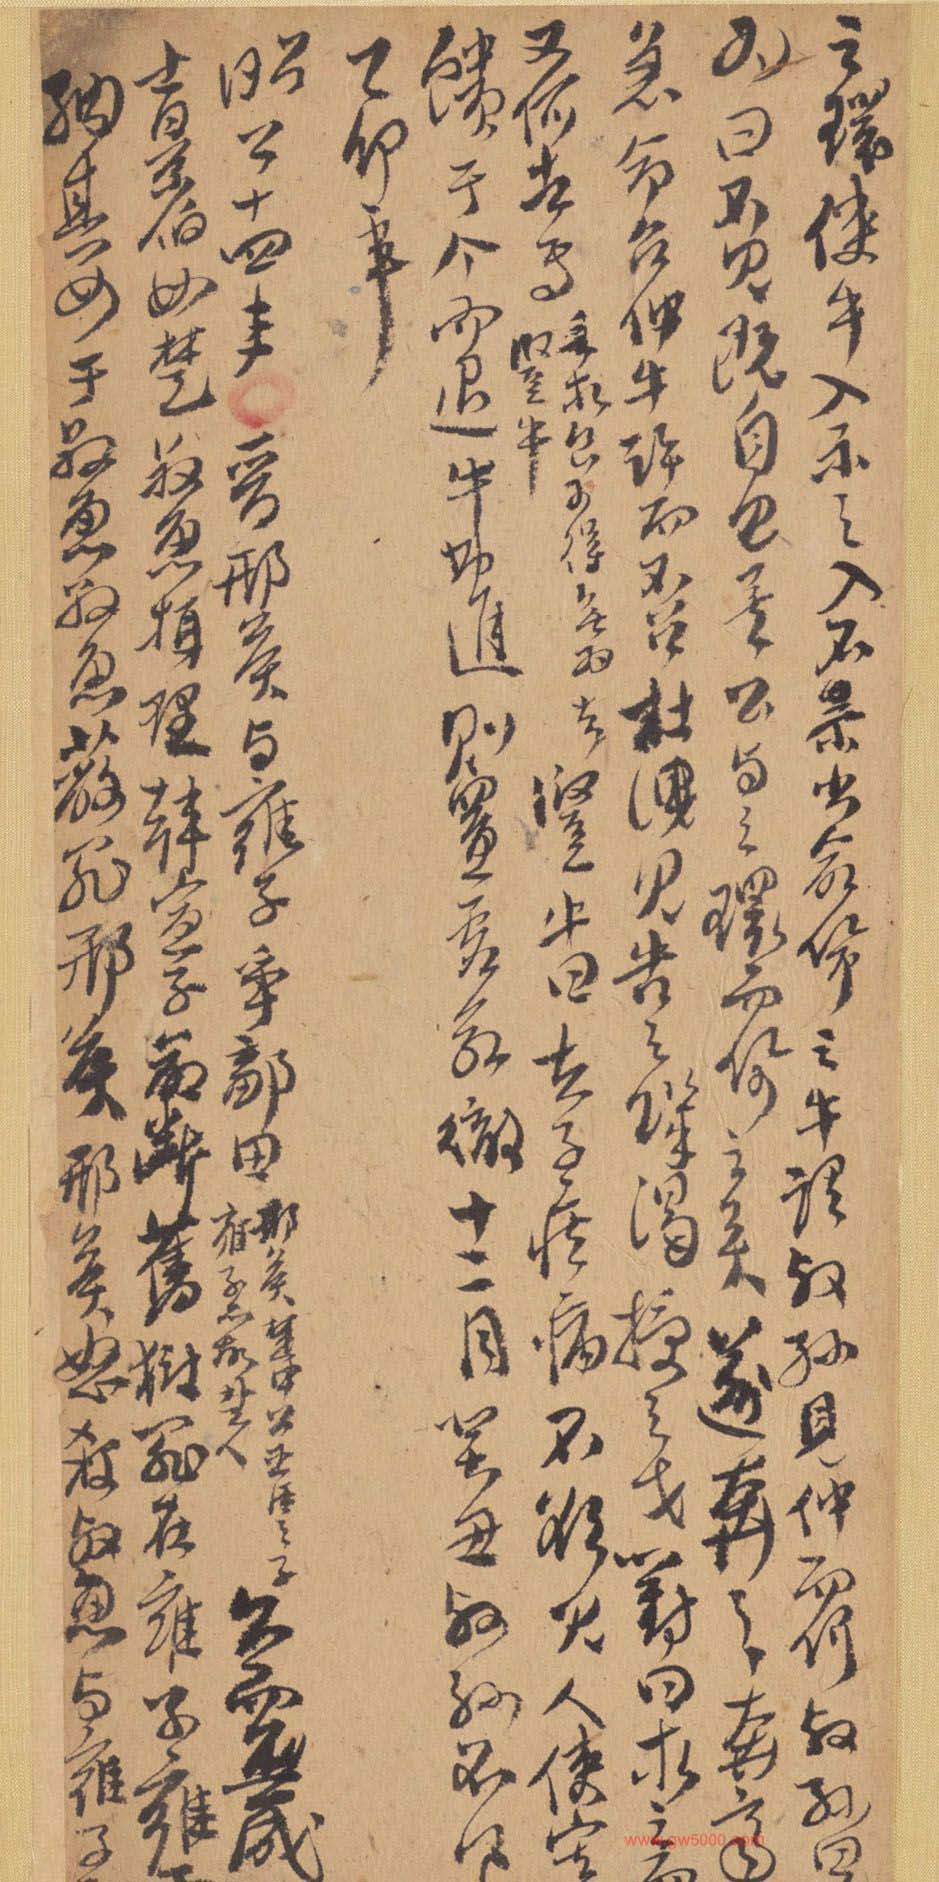 之環使牛入示之入不示出命佩之牛謂叔孫見仲而何叔孫曰
為曰不見既自見矣公與之環而佩之矣遂逐之奔齊
急命召仲牛許而不召杜洩見告之飢渴授之戈對曰求之而
又何去焉
豎牛曰夫子疾病不欲見人使寘
饋于个而退牛弗進則置虛命徹十二月癸丑叔孫不食
乙卯卒
昭公十四年 晉邢侯與雍子爭鄐田
雍子亦故楚人
久而無成
士景伯如楚叔魚攝理韓宣子命斷舊獄罪在雍子雍子
納其女于叔魚叔魚蔽罪邢侯邢侯怒殺叔魚與雍子
www.gw5000.com